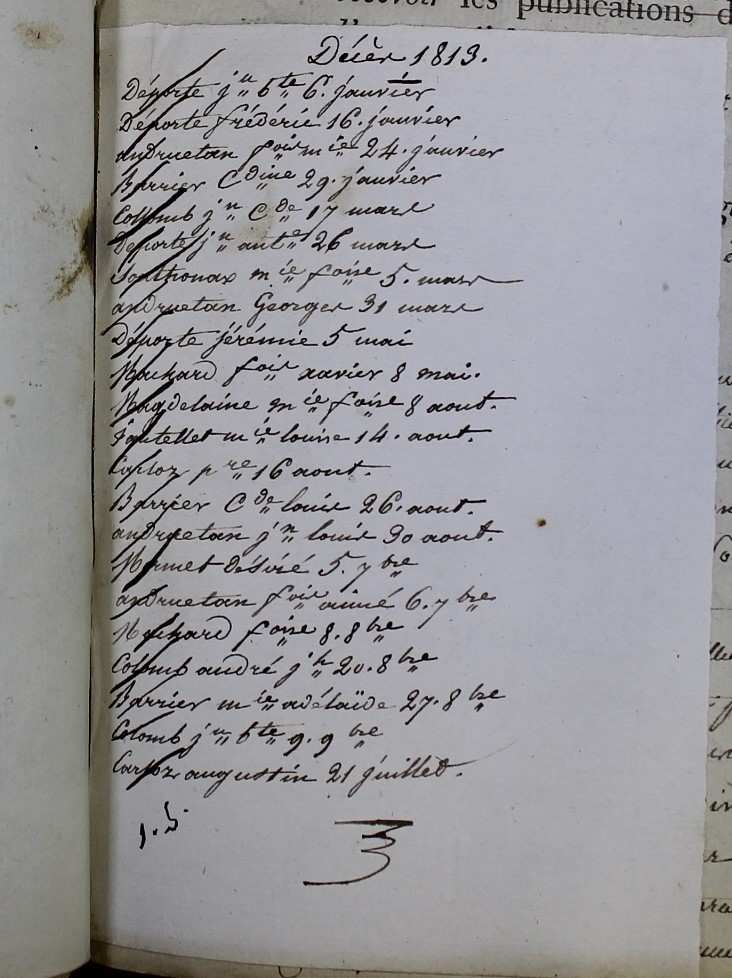 les publications d
Décès 1813.
Déporte j.n b.te 6. janvier
Déporte frédéric 16. janvier
andruetan f.ois m.ie 24. janvier
Barrier C.dine 29. janvier
Collomb j.n C.de 17 mars
Deporte j.n ant.e 26 mars
m.ie f.oise 5. mars
andruetan Georges 31 mars
Déporte jérémie 5 mai
f.ois xavier 8 mai.
Magdelaine m.ie f.oise 8 aout.
m.ie louise 14. aout.
Carloz p.re 16 aout.
Barrier C.de louis 26. aout.
andruetan j.n louis 30 aout.
Mermet désiré 5. 7.bre
andruetan f.ois aimé 6. 7.bre
f.oise 8. 8.bre
Colomb andré j.h 20. 8.bre
Barrier m.ie adélaïde 27. 8.bre
Colomb j.n b.te 9. 9.bre
Carloz augustin 21 juillet.